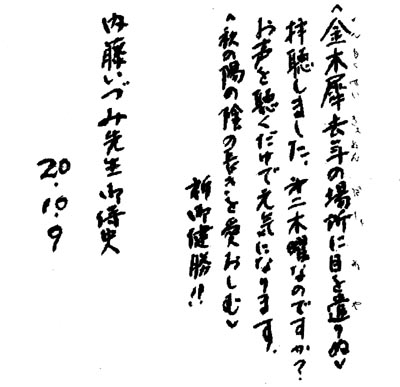 〈金木犀去年の場所に目を遣りぬ〉
きんもくせい きょねん ばしょ め や
拝聴しました。第二木曜なのですか?
お声を聴くだけで元気になります。
〈秋の陽の陰の長きを愛おしむ〉
祈御健勝!!
内藤いづみ先生御侍史
20.10.9